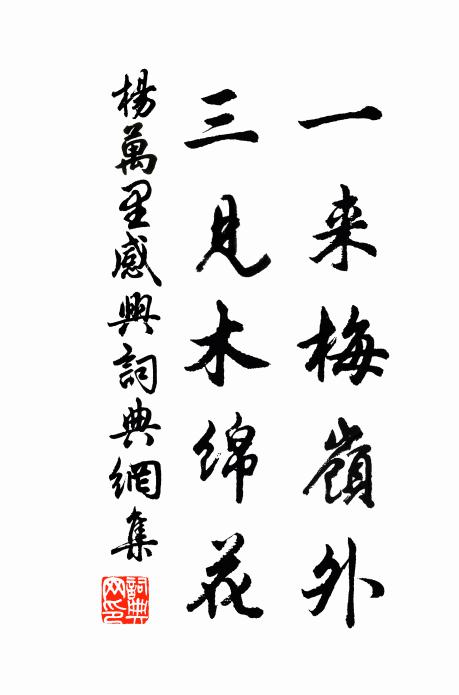 一来梅嶺外
三見木綿花
楊萬里感興詞典網集
詞典網印